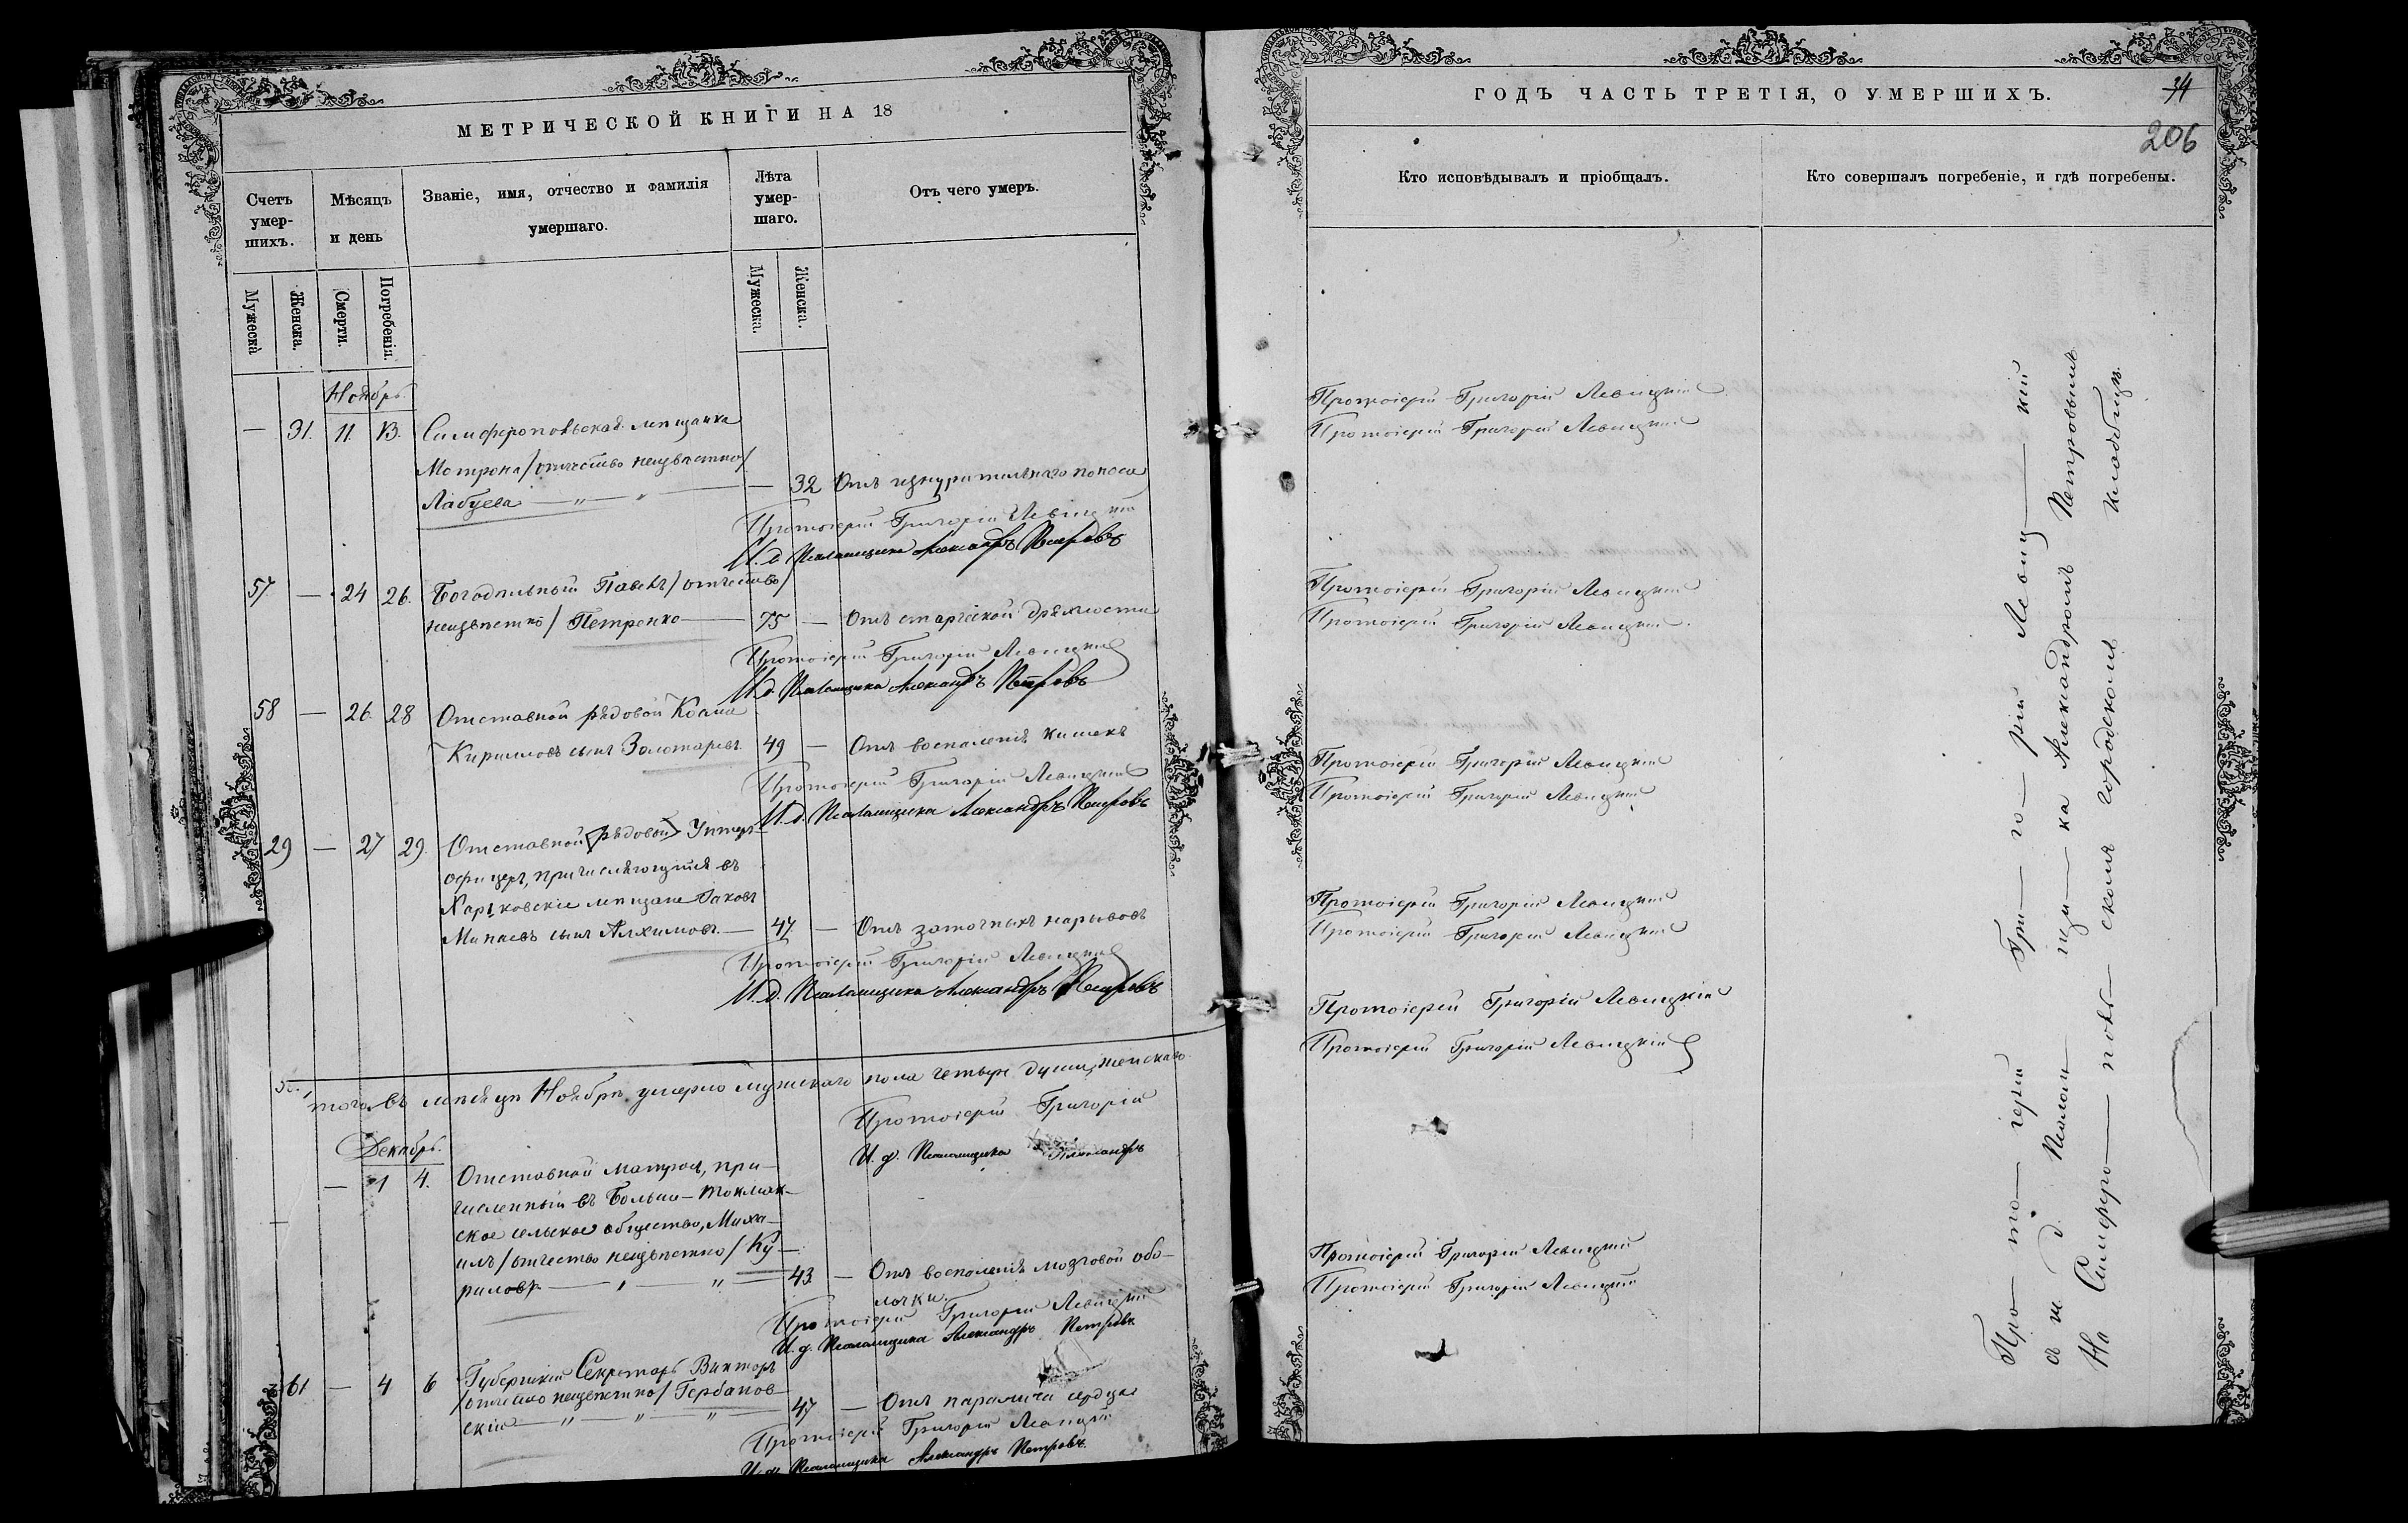 МЕТРИЧЕСКОЙ КНИГИ НА 18
Счетъ умер-шихъ.
Мѣсяцъ и день
Званіе, имя, отчество и фамилія умершаго.
Лѣта умер-шаго.
Отъ чего умеръ.
Мужеска
Женска.
Смерти.
Погребенія.
Мужеска.
Женска.
Ноябрь.
— 31. 11. 13. Симферопольская мѣщанка
Мотрона /отчество неизвѣстно/
Лабуева — „ — „ — — 32 Отъ изнурительнаго поноса
Протоіерей Григорій Левицкій
И. д. Псаломщика Александръ Петровъ
57 — 24 26. Богодѣльный Павелъ /отчество
неизвѣстно/ Петренко — 75 — Отъ старческой дряхлости
Протоіерей Григорій Левицкій
И. д. Псаломщика Александръ Петровъ
58 — 26. 28 Отставной рядовой Козма
Кирилловъ сынъ Золотаревъ. 49 — Отъ воспаленія кишекъ
Протоіерей Григорій Левицкій
И. д. Псаломщика Александръ Петровъ
29 — 27 29. Отставной /рядовой/ Унтеръ-
офицеръ, причисляющійся въ
Харьковскіе мѣщане Яковъ
Минаевъ сынъ Алхимовъ. — 47 — Отъ заточныхъ нарывовъ
Протоіерей Григорій Левицкій
И. д. Псаломщика Александръ Петровъ
того въ мѣсяцѣ Ноябрѣ умерло мужскаго пола четыре души, женскаго
Протоіерей Григорій
И. д. Псаломщика Александръ
Декабрь.
— 1 4. Отставной матросъ, при-
численный въ Больше-Токмак-
ское сельское общество, Миха-
илъ /отчество неизвѣстно/ Ку-
риловъ. — „ — „ — 43 — Отъ воспаленія мозговой обо-
лочки.
Протоіерей Григорій Левицкій
И. д. Псаломщика Александръ Петровъ
61 — 4 6 Губернскій Секретарь Викторъ
/отчество неизвѣстно/ Гербанов-
скій — „ — „ — „ — 47 — Отъ паралича сердца
Протоіерей Григорій Левицкій
И. д. Псаломщика Александръ Петровъ.
ГОДЪ ЧАСТЬ ТРЕТІЯ, О УМЕРШИХЪ.
34
206
Кто исповѣдывалъ и пріобщалъ.
Кто совершалъ погребеніе, и гдѣ погребены.
Протоіерей Григорій Левицкій
Протоіерей Григорій Левицкій
Протоіерей Григорій Левицкій
Протоіерей Григорій Левицкій.
Протоіерей Григорій Левицкій
Протоіерей Григорій Левицкій
Протоіерей Григорій Левицкій
Протоіерей Григорій Левицкій
Протоіерей Григорій Левицкій
Протоіерей Григорій Левицкій
Протоіерей Григорій Левицкій
Протоіерей Григорій Левицкій
Про — то — іерей Гри — го — рій Левиц — кій
съ и. д. Псалом — щи — ка Александромъ Петровымъ
На Симферо — поль — скомъ городскомъ кладбищѣ.